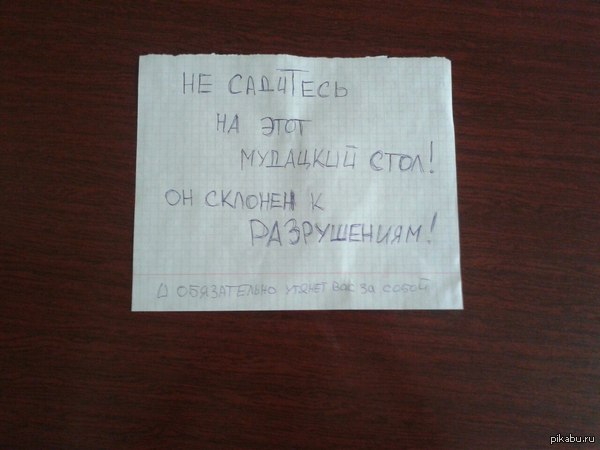 НЕ САДИТЕСЬ
НА ЭТОТ
МУДАЦКИЙ СТОЛ!
ОН СКЛОНЕН К
РАЗРУШЕНИЯМ!
И ОБЯЗАТЕЛЬНО УТЯНЕТ ВАС ЗА СОБОЙ
pikabu.ru